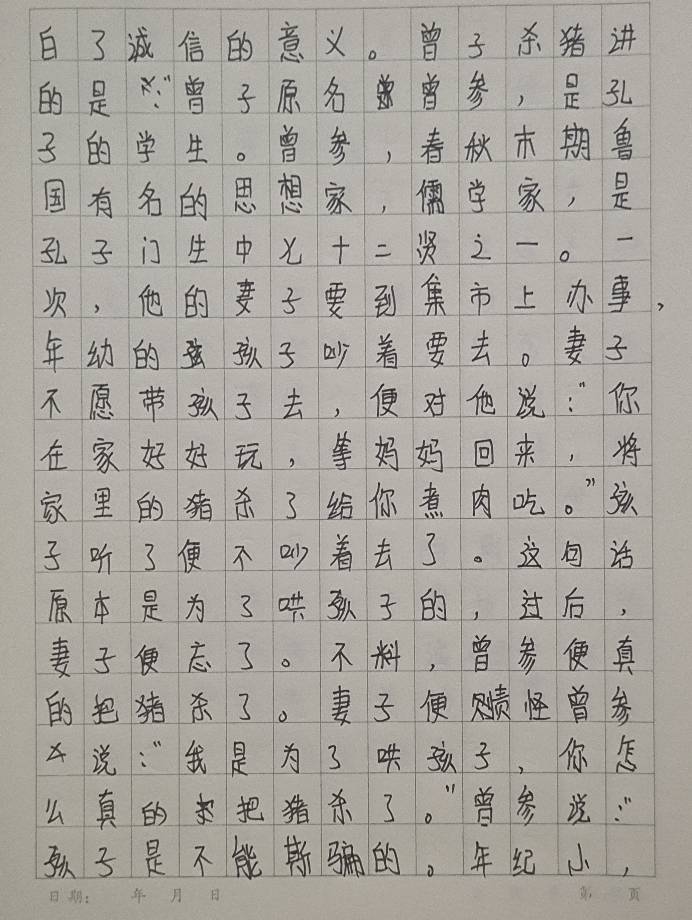 白了诚信的意义。曾子杀猪讲
的是:“曾子原名曾参,是孔
子的学生。曾参,春秋末期鲁
国有名的思想家,儒学家,是
孔子门生中七十二贤之一。一
次,他的妻子要到集市上办事,
年幼的孩子吵着要去。妻子
不愿带孩子去,便对他说:“你
在家好好玩,等妈妈回来,将
家里的猪杀了给你煮肉吃。”孩
子听了便不吵着去了。这句话
原本是为了哄孩子的,过后,
妻子便忘了。不料,曾参便真
的把猪杀了。妻子便怪曾参
说:“我是为了哄孩子,你怎
么真的把猪杀了。”曾参说:“
孩子是不能欺骗的。年纪小,
日期: 年 月 日 第 页